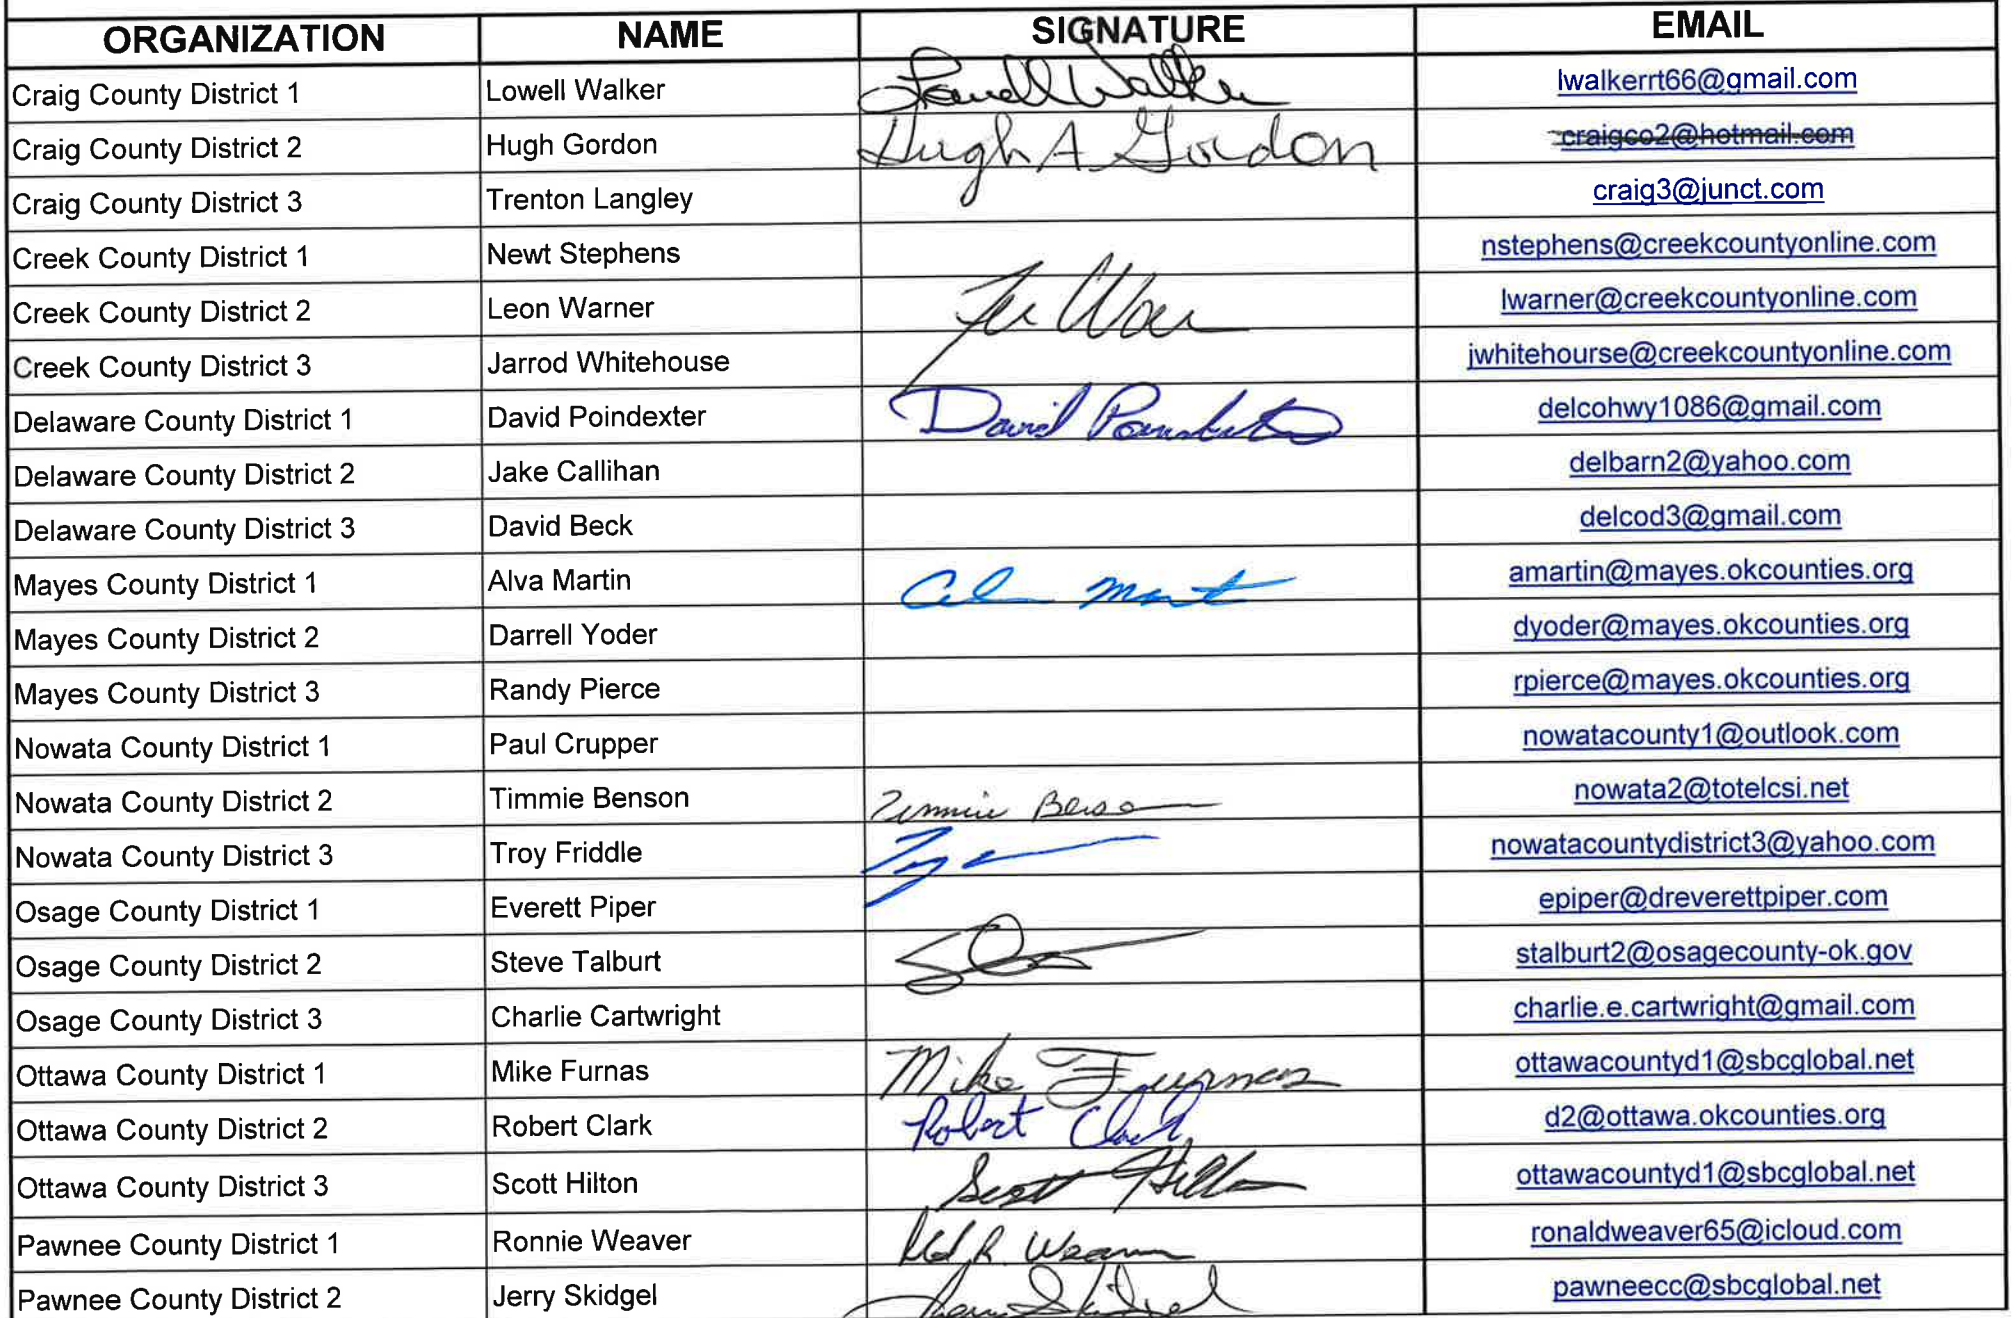 ORGANIZATION NAME SIGNATURE EMAIL
Craig County District 1 Lowell Walker Lowell Walker lwalkerrt66@gmail.com
Craig County District 2 Hugh Gordon Hugh A Gordon craigco2@hotmail.com
Craig County District 3 Trenton Langley craig3@junct.com
Creek County District 1 Newt Stephens nstephens@creekcountyonline.com
Creek County District 2 Leon Warner lwarner@creekcountyonline.com
Creek County District 3 Jarrod Whitehouse jwhitehourse@creekcountyonline.com
Delaware County District 1 David Poindexter David Poindexter delcohwy1086@gmail.com
Delaware County District 2 Jake Callihan delbarn2@yahoo.com
Delaware County District 3 David Beck delcod3@gmail.com
Mayes County District 1 Alva Martin amartin@mayes.okcounties.org
Mayes County District 2 Darrell Yoder dyoder@mayes.okcounties.org
Mayes County District 3 Randy Pierce rpierce@mayes.okcounties.org
Nowata County District 1 Paul Crupper nowatacounty1@outlook.com
Nowata County District 2 Timmie Benson Timmie Benson nowata2@totelcsi.net
Nowata County District 3 Troy Friddle nowatacountydistrict3@yahoo.com
Osage County District 1 Everett Piper epiper@dreverettpiper.com
Osage County District 2 Steve Talburt stalburt2@osagecounty-ok.gov
Osage County District 3 Charlie Cartwright charlie.e.cartwright@gmail.com
Ottawa County District 1 Mike Furnas Mike Furnas ottawacountyd1@sbcglobal.net
Ottawa County District 2 Robert Clark Robert Clark d2@ottawa.okcounties.org
Ottawa County District 3 Scott Hilton Scott Hilton ottawacountyd1@sbcglobal.net
Pawnee County District 1 Ronnie Weaver R. Weaver ronaldweaver65@icloud.com
Pawnee County District 2 Jerry Skidgel Skidgel pawneecc@sbcglobal.net